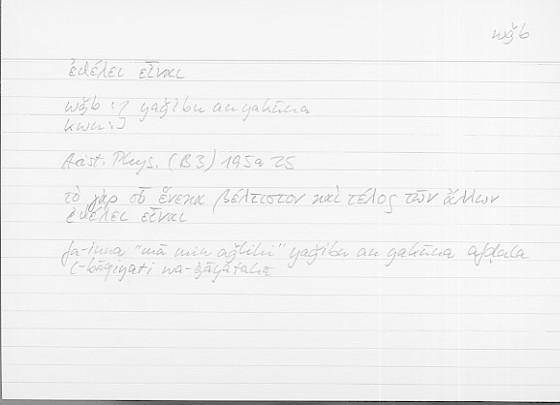 wǧb
ἐθέλει εἶναι
wǧb :: yaǧibu an yakūna
kwn ::
Arist. Phys. (B3) 195a25
τὸ γὰρ οὗ ἕνεκα βέλτιστον καὶ τέλος τῶν ἄλλων
ἐθέλει εἶναι
fa-inna “mā min aǧlihi” yaǧibu an yakūna afḍala
l-bāqiyati wa-ġāyatahā